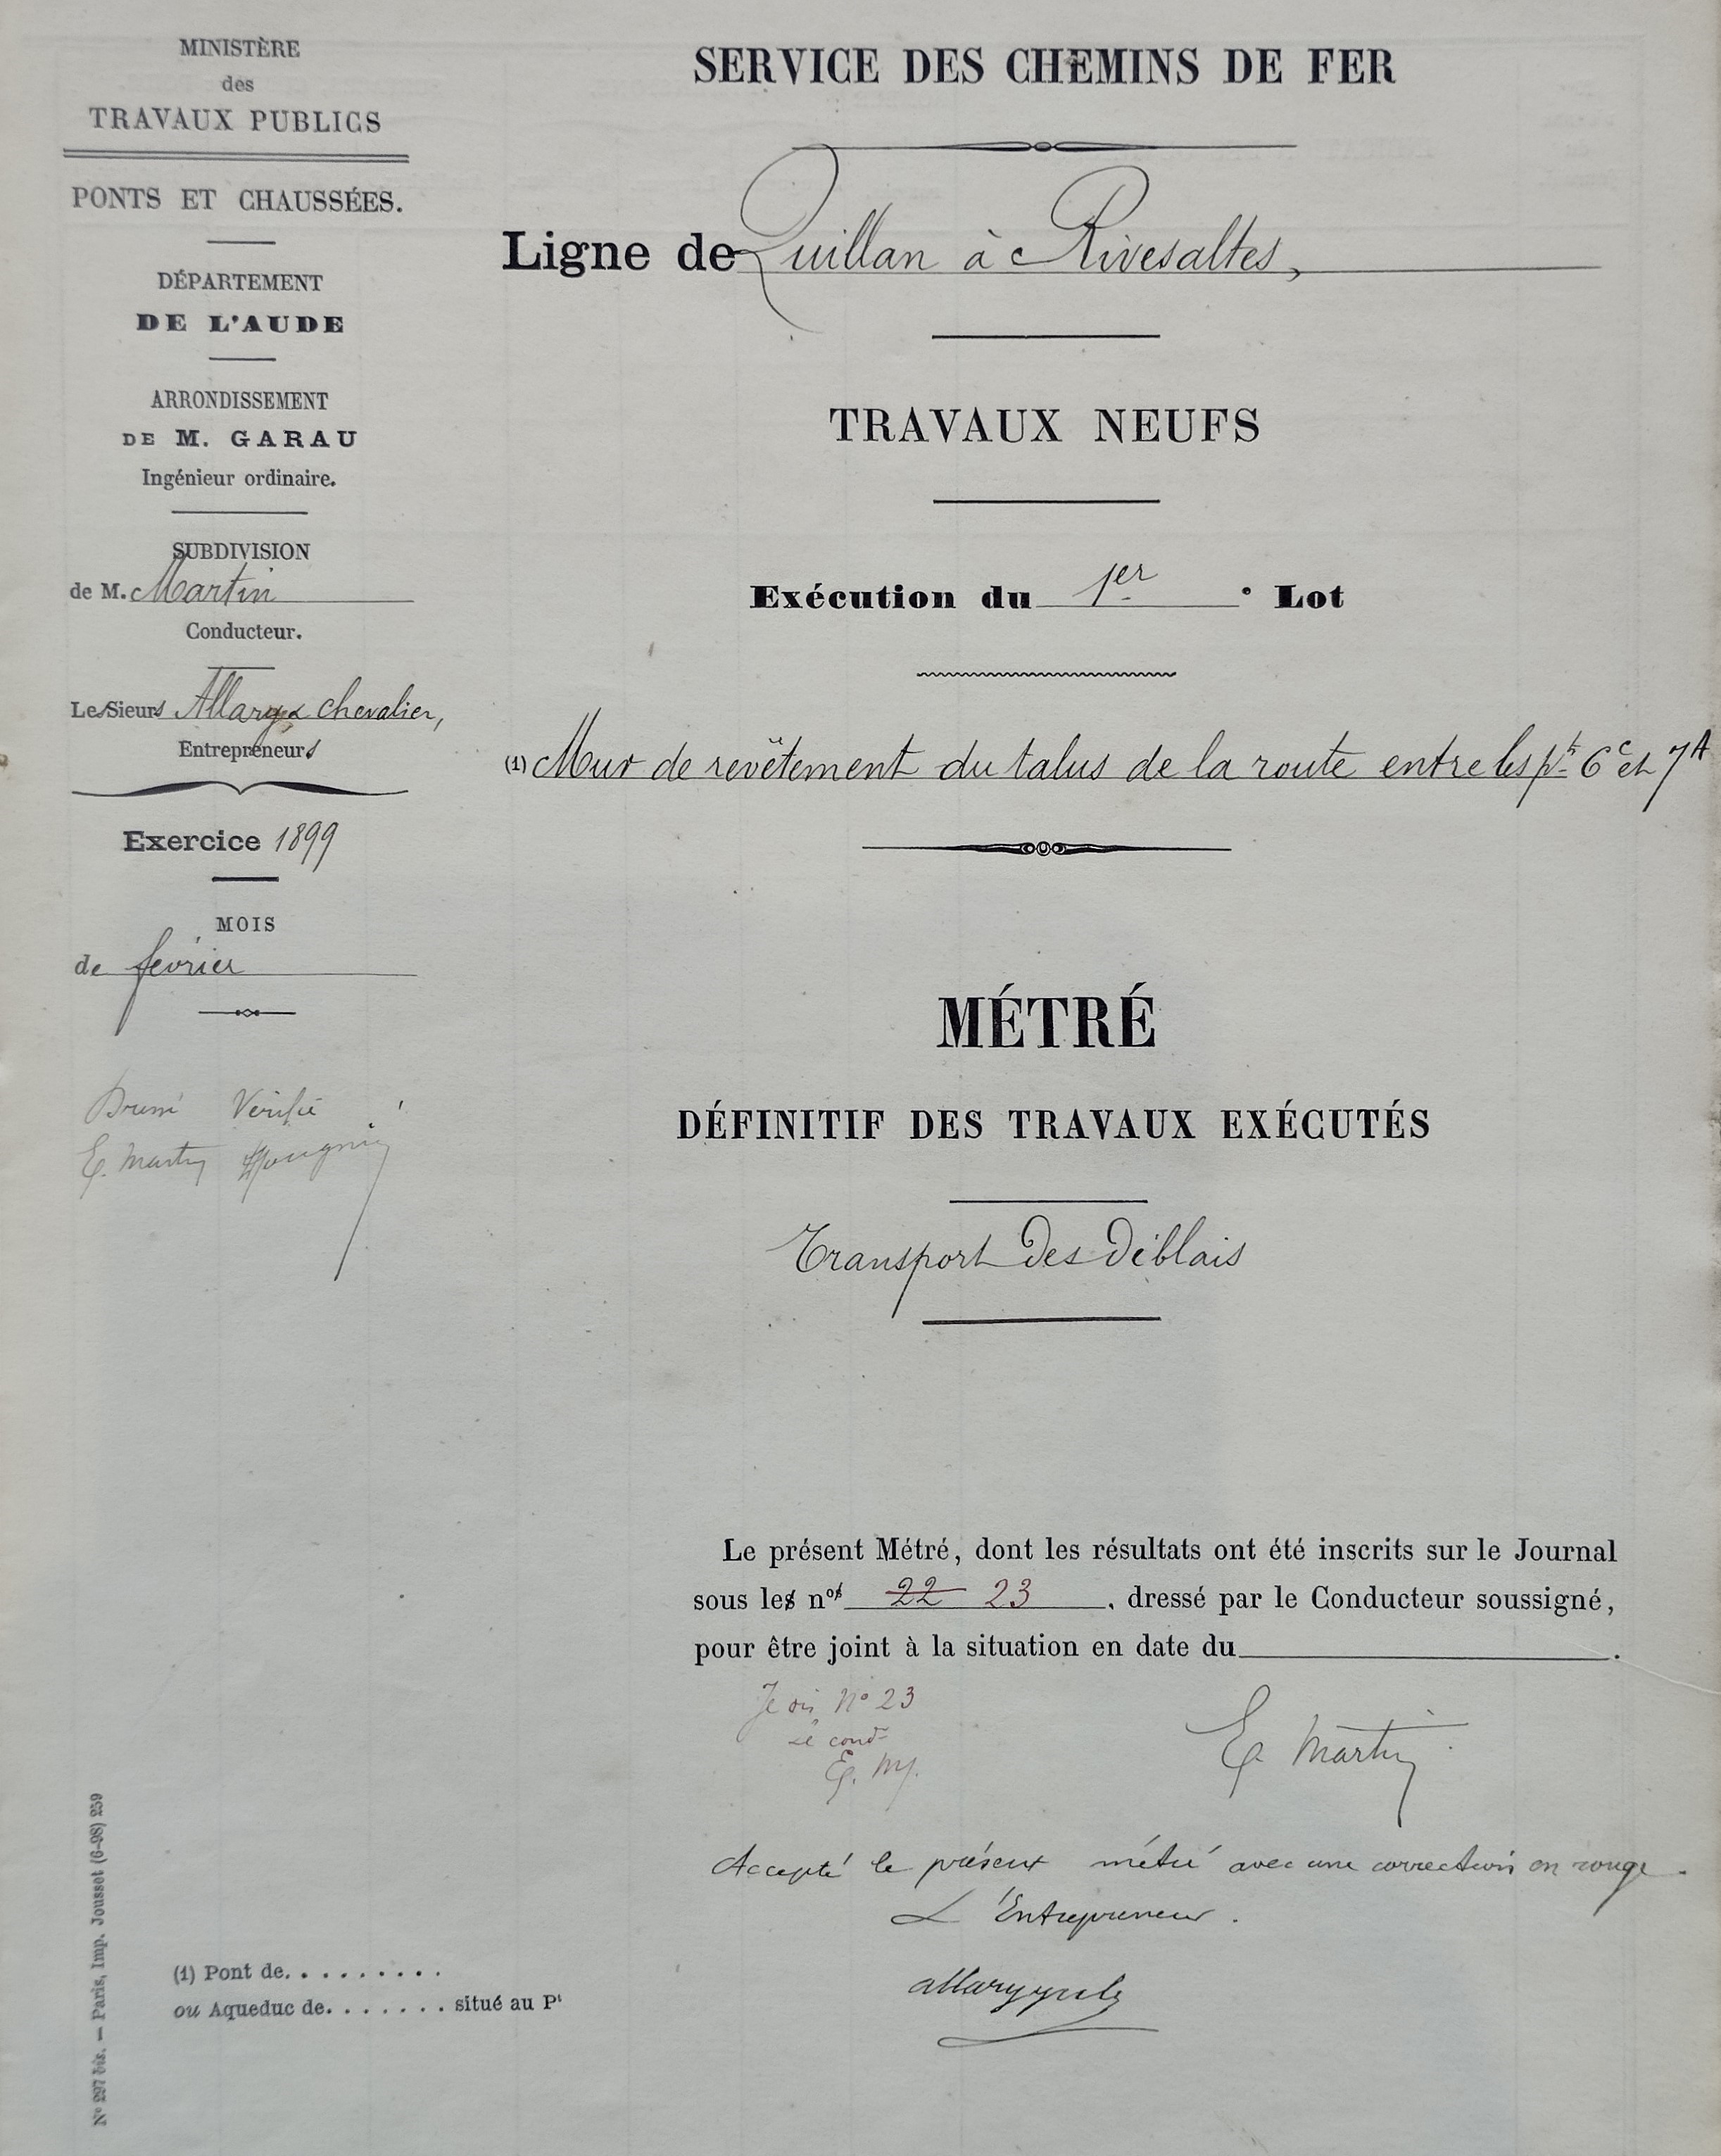 MINISTÈRE
des
TRAVAUX PUBLICS
PONTS ET CHAUSSÉES.
DÉPARTEMENT
DE L'AUDE
ARRONDISSEMENT
DE M. GARAU
Ingénieur ordinaire.
SUBDIVISION
de M. Martin
Conducteur.
Les Sieurs Allary & Chevalier,
Entrepreneurs
Exercice 1899
MOIS
de février
Vérifié
E. Martin
SERVICE DES CHEMINS DE FER
Ligne de Quillan à Rivesaltes,
TRAVAUX NEUFS
Exécution du 1er e Lot
(1) Mur de revêtement du talus de la route entre les pts 6c et 7A
MÉTRÉ
DÉFINITIF DES TRAVAUX EXÉCUTÉS
Transport des déblais
Le présent Métré, dont les résultats ont été inscrits sur le Journal
sous les nos 22 23 , dressé par le Conducteur soussigné,
pour être joint à la situation en date du .
N° 23
Le cond
E. M.
E. Martin
Accepté le présent métré avec une correction en rouge.
L'Entrepreneur.
Allary
(1) Pont de. . . . . . . . .
ou Aqueduc de. . . . . . . situé au Pt
N° 297 bis. — Paris, Imp. Jousset (6-98) 259